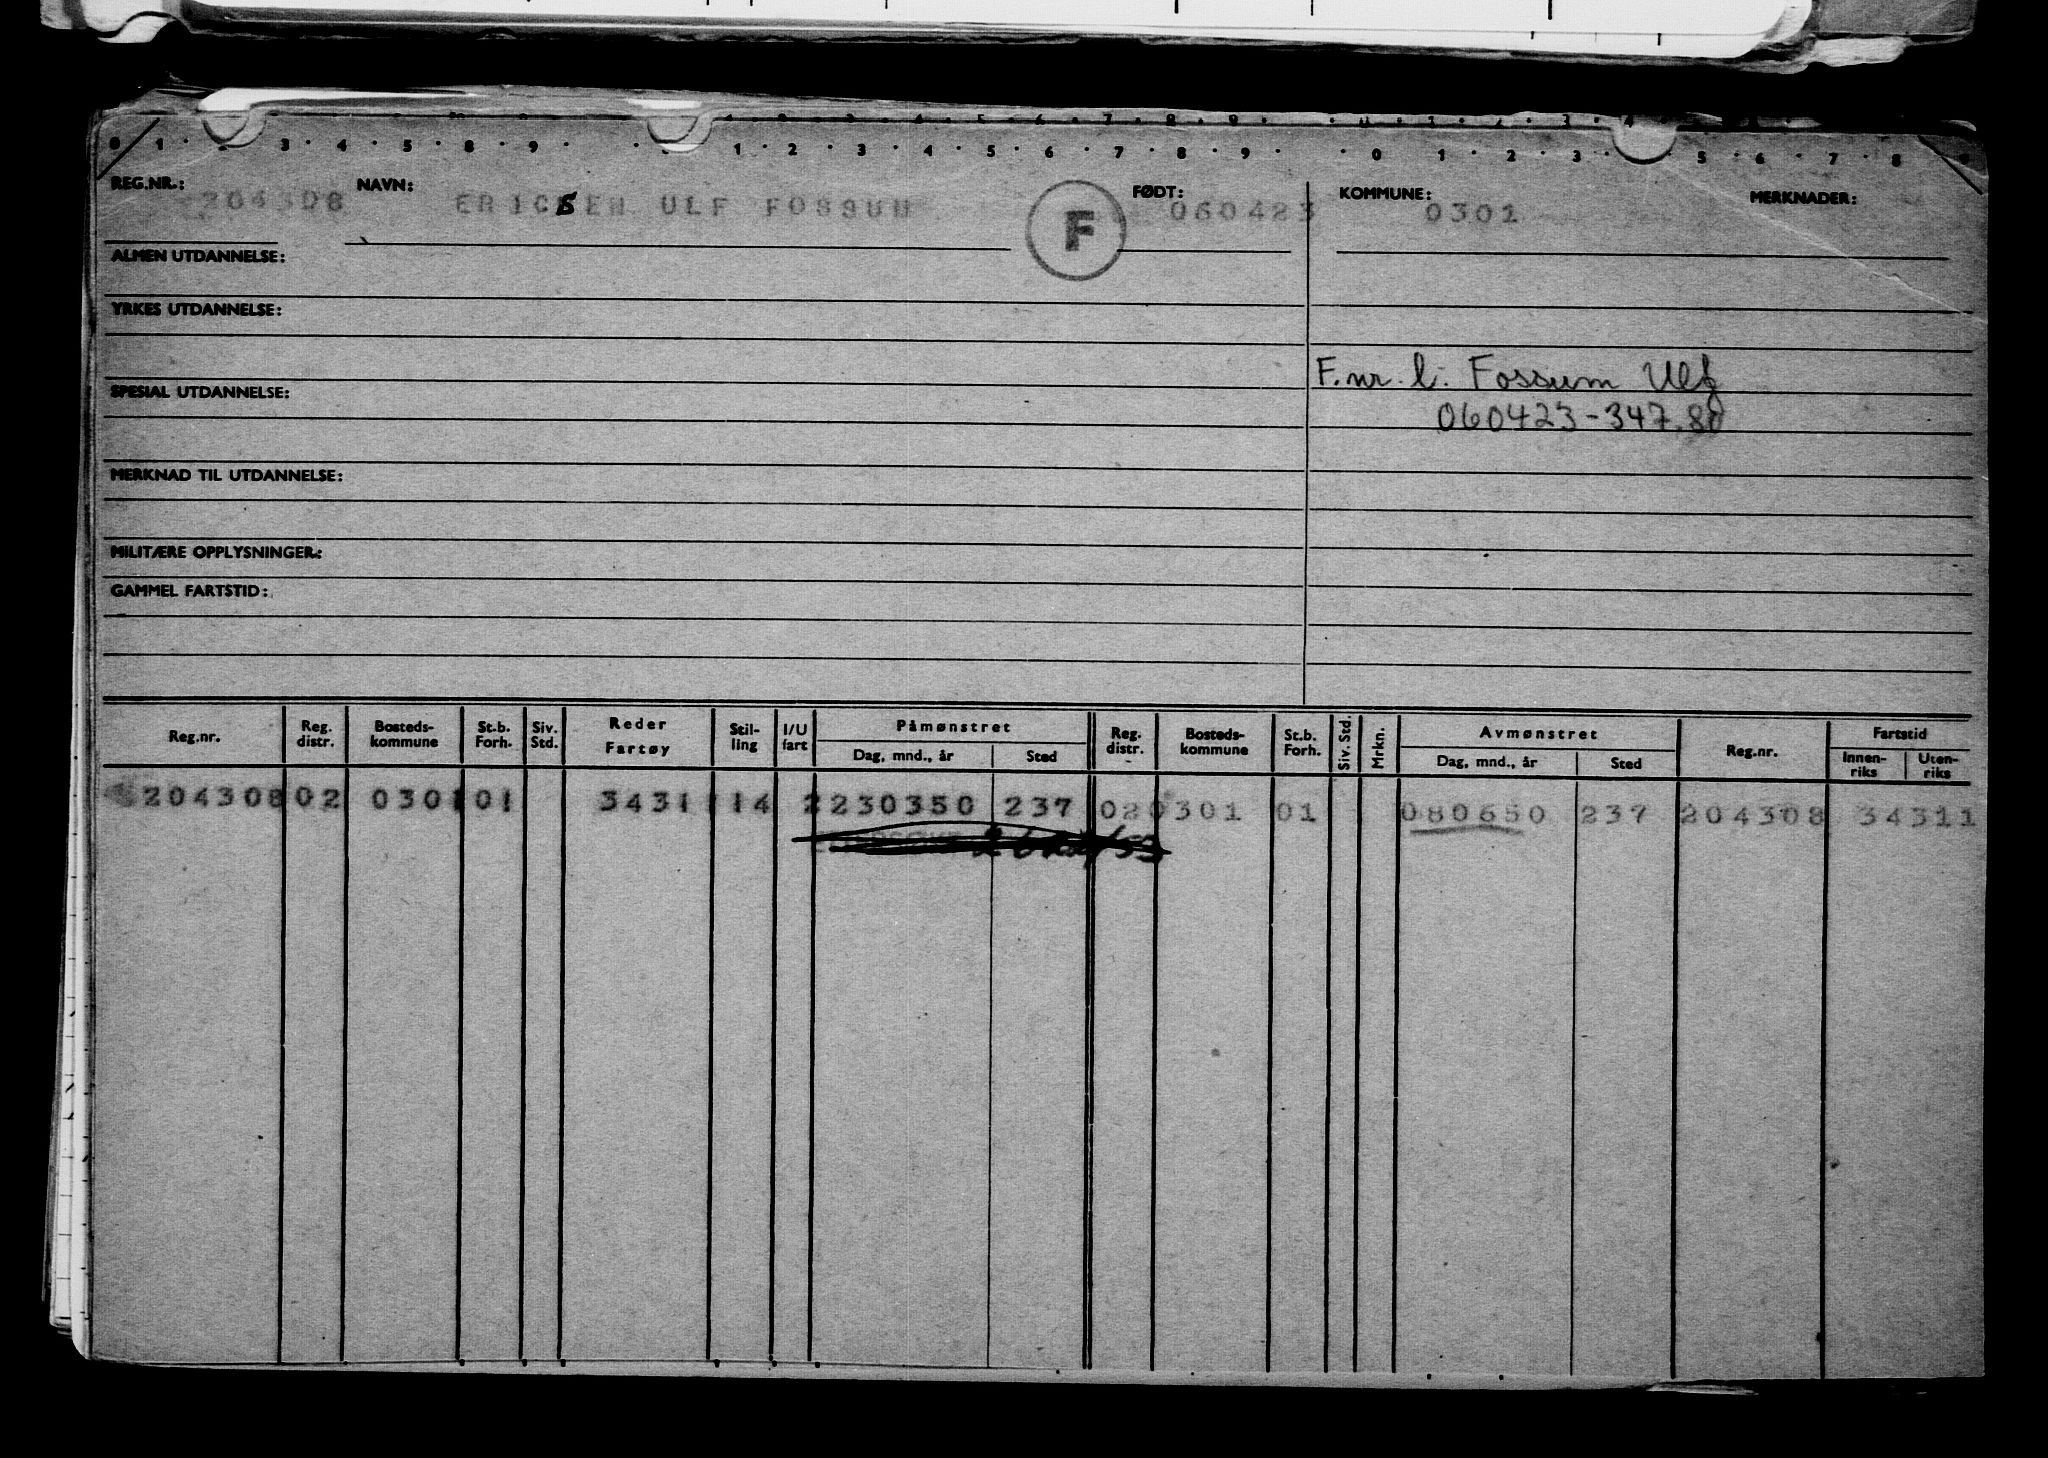 REG.NR.: 204308 NAVN: ERICSEN ULF FOSSUM F FØDT: 060423 KOMMUNE: 0301 MERKNADER:
ALMEN UTDANNELSE:
YRKES UTDANNELSE:
F.nr. l. Fossum Ulf
SPESIAL UTDANNELSE:
060423-347.80
MERKNAD TIL UTDANNELSE:
MILITÆRE OPPLYSNINGER:
GAMMEL FARTSTID:
Reg.nr. Reg. distr. Bosteds-kommune St.b. Forh. Siv. Std. Reder Fartøy Stil-ling I/U fart Påmønstret Dag, mnd., år Sted Reg. distr. Bosteds-kommune St.b. Forh. Siv. Std. Mrkn. Avmønstret Dag, mnd., år Sted Reg.nr. Fartstid Innen-riks Uten-riks
204308 02 0301 01 3431 114 2 230350 237 02 0301 01 080650 237 204308 34311